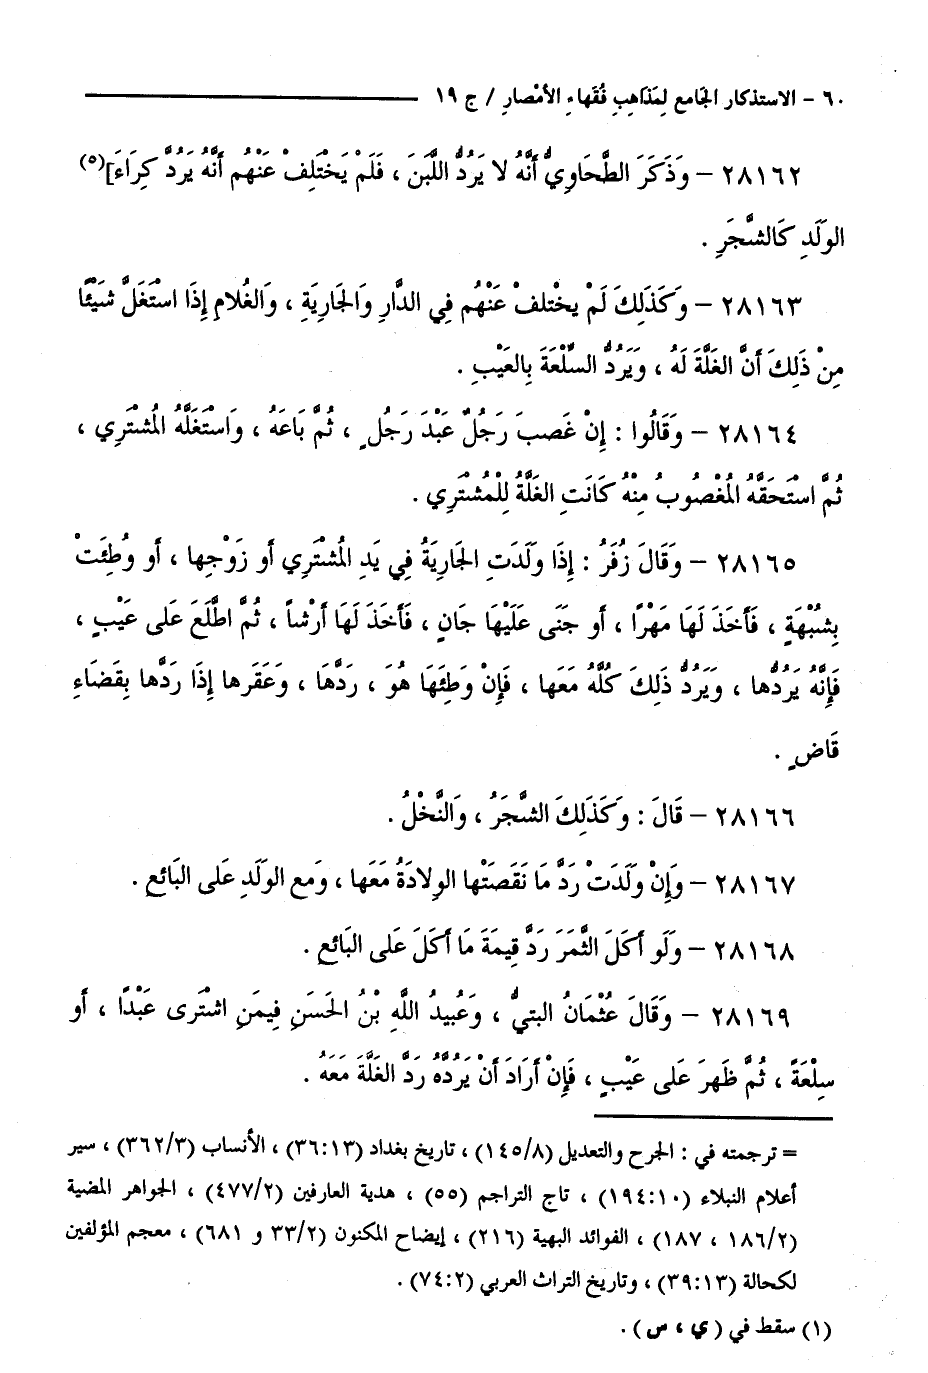 ٦٠ - الاستذكار الجَامع لِمَذَاهِبِ فُقَهاءِ الأمْصارِ / ج ١٩
٢٨١٦٢ – وَذَكَرَ الطَّحَاوِيُّ أَنَّهُ لا يَرُدُّ اللَّبَنَ ، فَلَمْ يَخْتَلِفْ عَنْهُم أَنَّهُ يَرُدُّ كِرَاءَ](٥)
الوَلَدِ كَالشَّجَرِ .
٢٨١٦٣ – وَكَذَلِكَ لَمْ يخْتلفْ عَنْهُم فِي الدَّارِ وَالجَارِيَةِ ، وَالغُلامِ إِذَا اسْتَغَلَّ شَيْئًا
مِنْ ذَلِكَ أَنَّ الغَلَّةَ لَهُ ، وَيَرُدُّ السِّلْعَةَ بِالعَيْبِ .
٢٨١٦٤ – وَقَالُوا : إِنْ غَصبَ رَجُلٌ عَبْدَ رَجُلٍ ، ثُمَّ بَاعَهُ ، وَاسْتَغَلَّهُ الْمُشْتَرِي ،
ثُمَّ اسْتَحَقَّهُ الْمَغْصُوبُ مِنْهُ كَانَتِ الغَلَّةُ لِلْمُشْتَرِي .
٢٨١٦٥ – وَقَالَ زُفَرُ : إِذَا وَلَدَتِ الجَارِيَةُ فِي يَدِ الْمُشْتَرِي أو زَوْجِها ، أو وُطِئَتْ
بِشُبْهَةٍ ، فَأخَذَ لَهَا مَهْرًا ، أو جَنَى عَلَيْهَا جَانٍ ، فَأخَذَ لَهَا أرْشاً ، ثُمَّ اطَّلَعَ عَلى عَيْبٍ ،
فَإِنَّهُ يَرُدُّها ، وَيَرُدُّ ذَلِكَ كُلَّهُ مَعَها ، فَإِنْ وَطِئَهَا هُوَ ، رَدَّها ، وَعَقَرها إِذَا رَدَّها بِقَضَاءِ
قَاضٍ .
٢٨١٦٦ – قَالَ : وَكَذَلِكَ الشَّجَرُ ، وَالنَّخْلُ .
٢٨١٦٧ – وَإِنْ وَلَدَتْ رَدَّ مَا نَقَصَتْها الوِلادَةُ مَعَها ، وَمع الوَلَدِ عَلى البَائعِ .
٢٨١٦٨ – وَلَو أكَلَ الثَّمَرَ رَدَّ قِيمَةَ مَا أكَلَ عَلى البَائعِ .
٢٨١٦٩ – وَقَالَ عُثْمَانُ البتيُّ ، وَعُبِيدُ اللَّهِ بْنُ الحَسَنِ فِيمَنِ اشْتَرى عَبْدًا ، أو
سِلْعَةً ، ثُمَّ ظَهرَ عَلى عَيْبٍ ، فَإِنْ أرَادَ أنْ يَرُدَّهُ رَدَّ الغَلَّةَ مَعَهُ .
= ترجمته في : الجرح والتعديل (١٤٥/٨) ، تاريخ بغداد (٣٦:١٣) ، الأنساب (٣٦٢/٣) ، سير
أعلام النبلاء (١٩٤:١٠) ، تاج التراجم (٥٥) ، هدية العارفين (٤٧٧/٢) ، الجواهر المضية
(١٨٦/٢ ، ١٨٧) ، الفوائد البهية (٢١٦) ، إيضاح المكنون (٣٣/٢ و ٦٨١) ، معجم المؤلفين
لكحالة (٣٩:١٣) ، وتاريخ التراث العربي (٧٤:٢) .
(١) سقط في ( ي ، س ) .